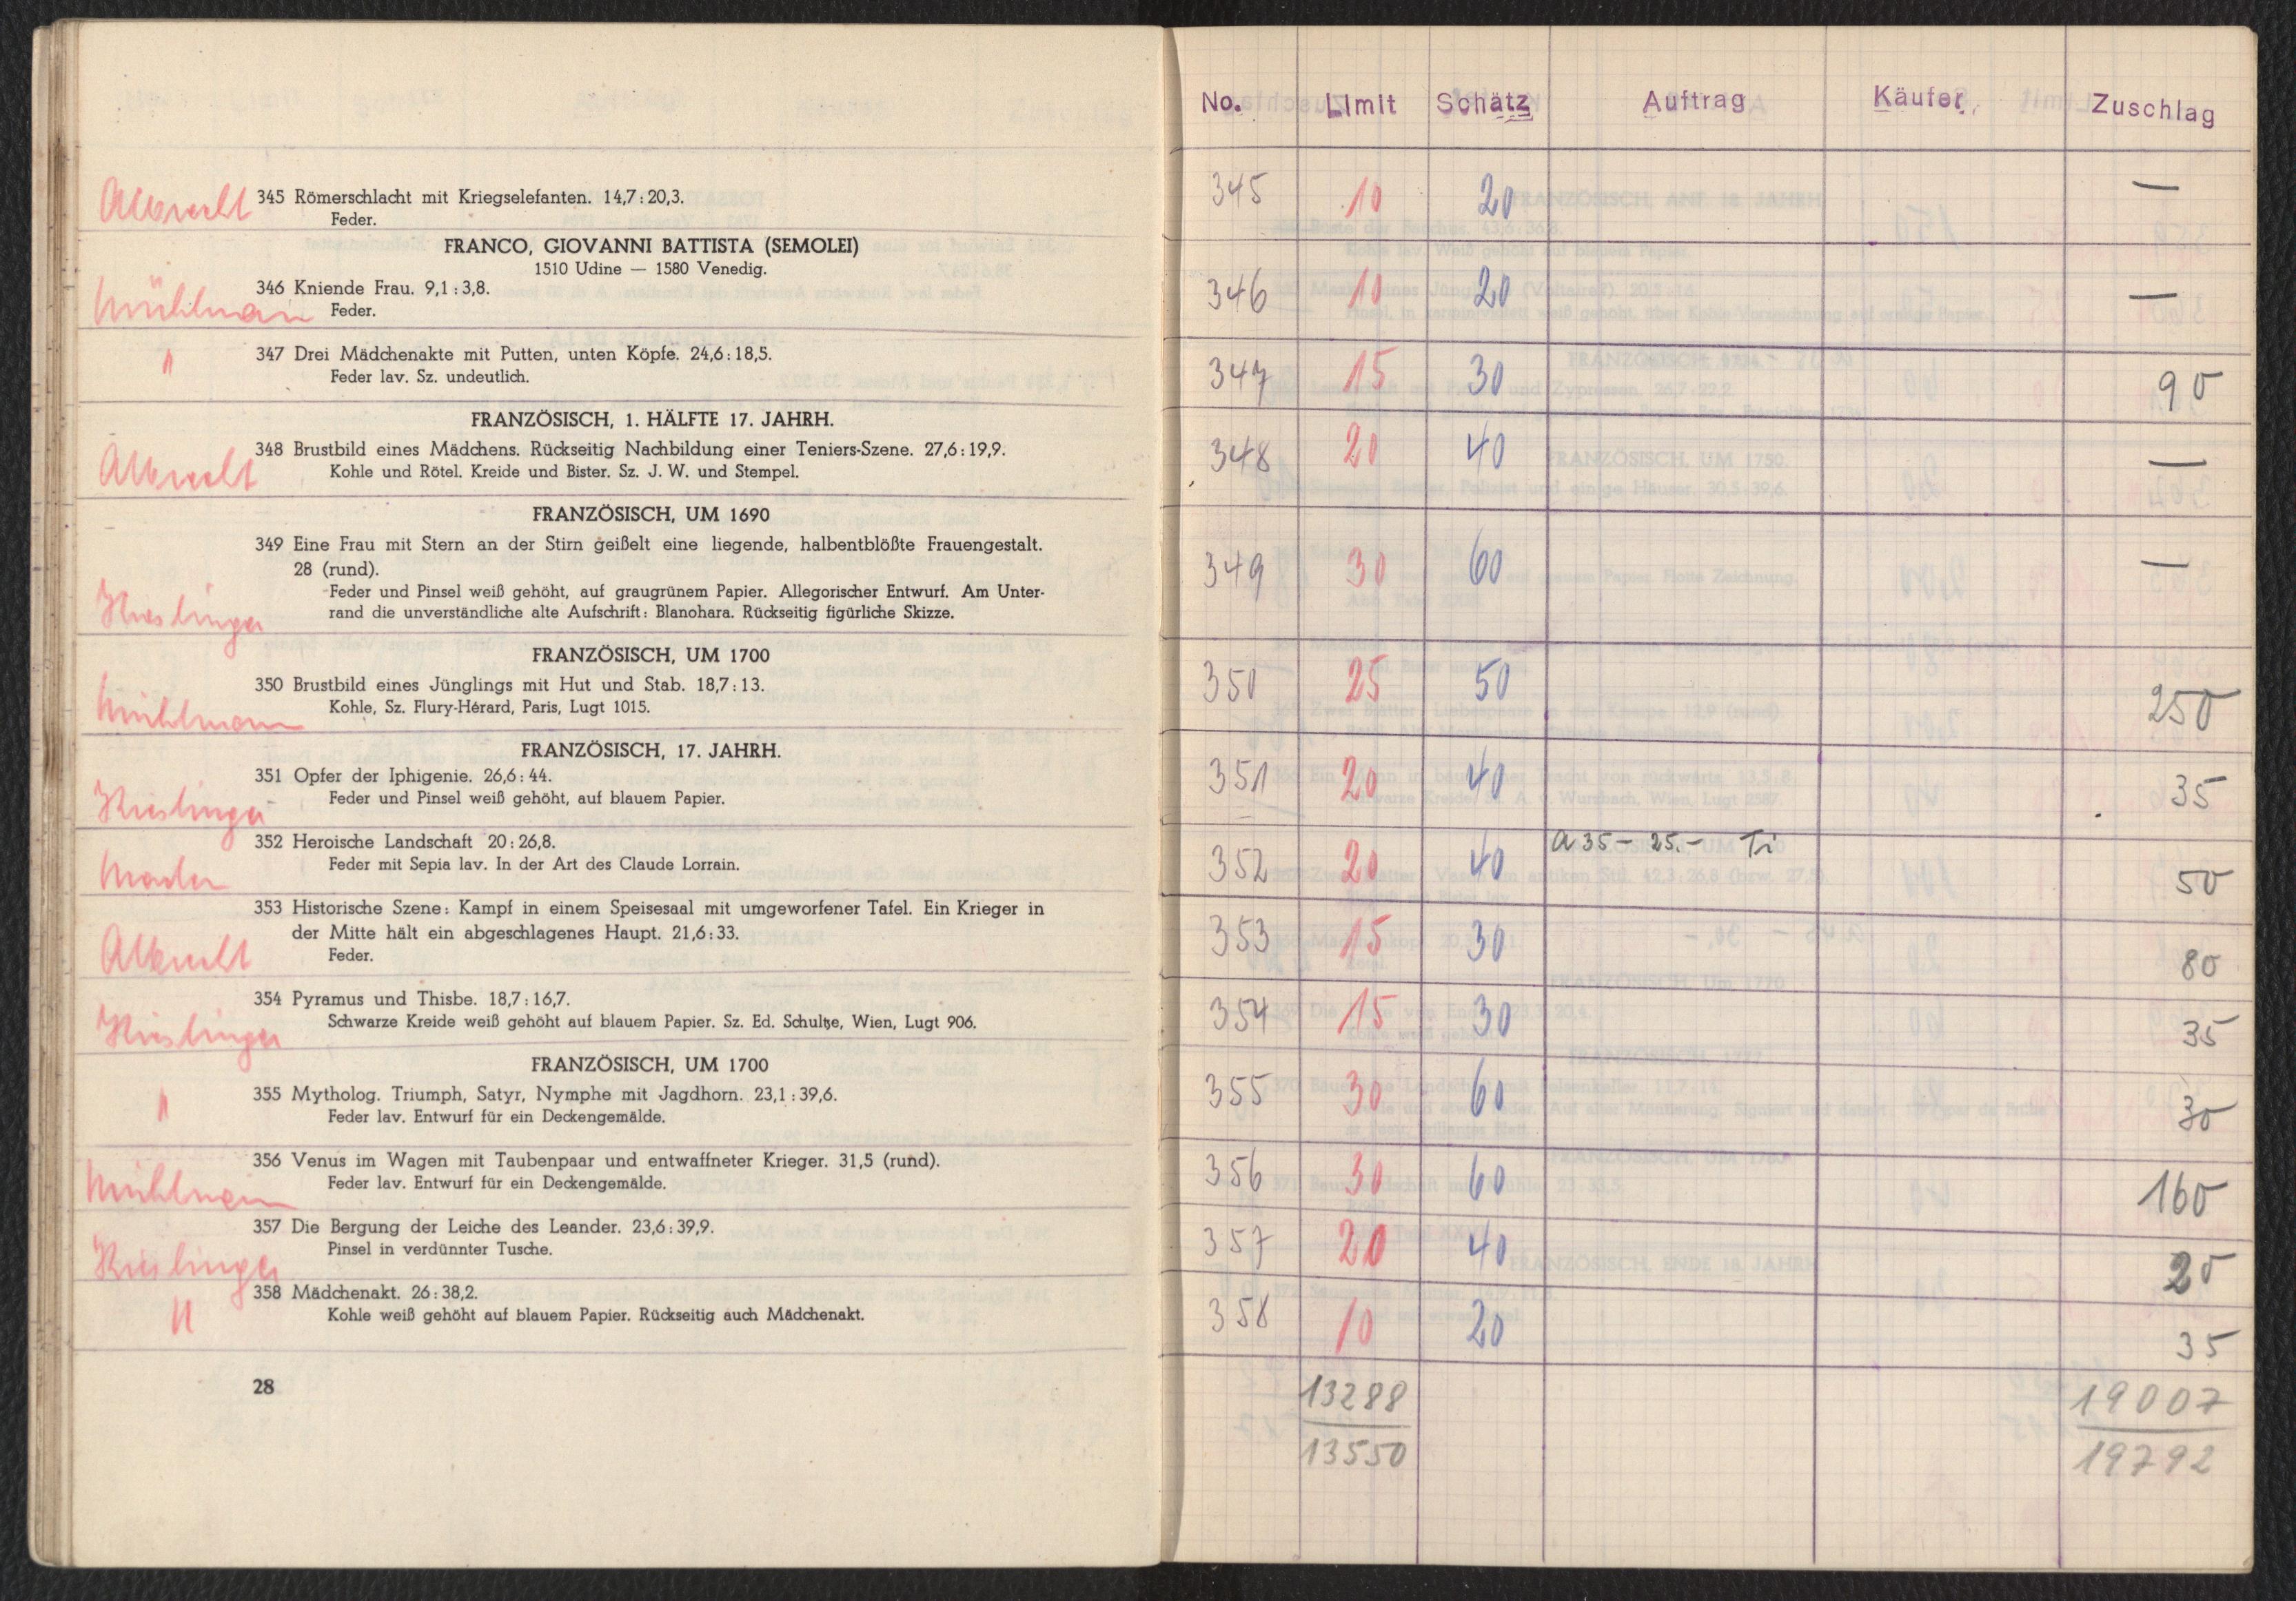 Albrecht 345 Römerschlacht mit Kriegselefanten. 14,7 : 20,3.
Feder.
FRANCO, GIOVANNI BATTISTA (SEMOLEI)
1510 Udine — 1580 Venedig.
346 Kniende Frau. 9,1 : 3,8.
Mühlmann Feder.
" 347 Drei Mädchenakte mit Putten, unten Köpfe. 24,6 : 18,5.
Feder lav. Sz. undeutlich.
FRANZÖSISCH, 1. HÄLFTE 17. JAHRH.
348 Brustbild eines Mädchens. Rückseitig Nachbildung einer Teniers-Szene. 27,6 : 19,9.
Albrecht Kohle und Rötel. Kreide und Bister. Sz. J. W. und Stempel.
FRANZÖSISCH, UM 1690
349 Eine Frau mit Stern an der Stirn geißelt eine liegende, halbentblößte Frauengestalt.
28 (rund).
Feder und Pinsel weiß gehöht, auf graugrünem Papier. Allegorischer Entwurf. Am Unter-
Kieslinger rand die unverständliche alte Aufschrift: Blanohara. Rückseitig figürliche Skizze.
FRANZÖSISCH, UM 1700
350 Brustbild eines Jünglings mit Hut und Stab. 18,7 : 13.
Mühlmann Kohle, Sz. Flury-Hérard, Paris, Lugt 1015.
FRANZÖSISCH, 17. JAHRH.
351 Opfer der Iphigenie. 26,6 : 44.
Kieslinger Feder und Pinsel weiß gehöht, auf blauem Papier.
352 Heroische Landschaft 20 : 26,8.
Feder mit Sepia lav. In der Art des Claude Lorrain.
353 Historische Szene: Kampf in einem Speisesaal mit umgeworfener Tafel. Ein Krieger in
der Mitte hält ein abgeschlagenes Haupt. 21,6 : 33.
Albrecht Feder.
354 Pyramus und Thisbe. 18,7 : 16,7.
Kieslinger Schwarze Kreide weiß gehöht auf blauem Papier. Sz. Ed. Schultze, Wien, Lugt 906.
FRANZÖSISCH, UM 1700
" 355 Mytholog. Triumph, Satyr, Nymphe mit Jagdhorn. 23,1 : 39,6.
Feder lav. Entwurf für ein Deckengemälde.
356 Venus im Wagen mit Taubenpaar und entwaffneter Krieger. 31,5 (rund).
Mühlmann Feder lav. Entwurf für ein Deckengemälde.
357 Die Bergung der Leiche des Leander. 23,6 : 39,9.
Kieslinger Pinsel in verdünnter Tusche.
358 Mädchenakt. 26 : 38,2.
" Kohle weiß gehöht auf blauem Papier. Rückseitig auch Mädchenakt.
28
No. Limit Schätz Auftrag Käufer Zuschlag
345 10 20 —
346 10 20 —
347 15 30 90
348 20 40 —
349 30 60 —
350 25 50 250
351 20 40 35
352 20 40 a 35 – 25.– Ti 50
353 15 30 80
354 15 30 35
355 30 60 30
356 30 60 160
357 20 40 20
358 10 20 35
13288 19007
13550 19792